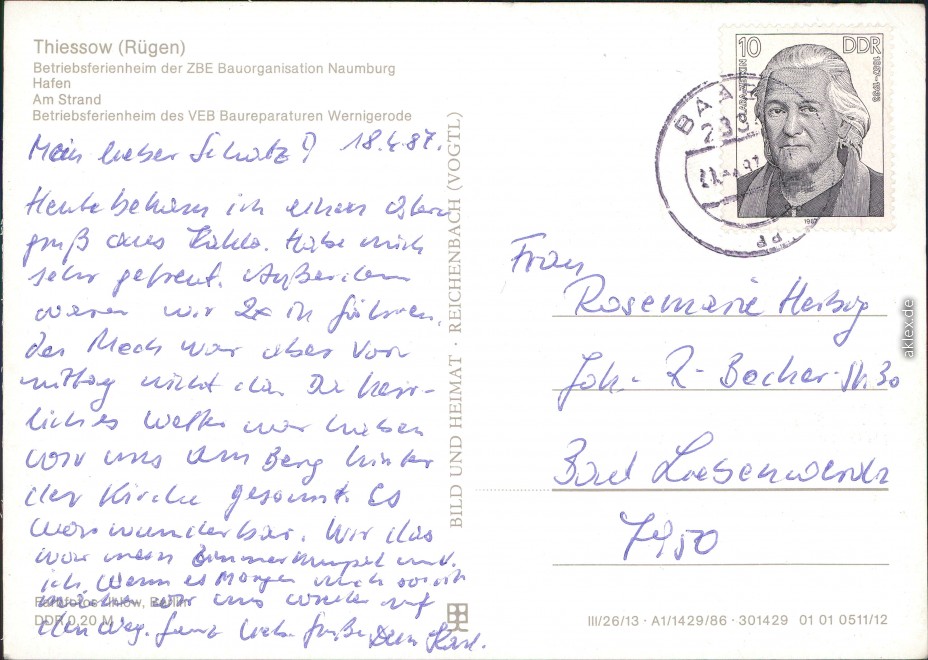 Thiessow (Rügen)
Betriebsferienheim der ZBE Bauorganisation Naumburg
Hafen
Am Strand
Betriebsferienheim des VEB Baureparaturen Wernigerode
Mein lieber Schatz! 18.4.87.
Heute bekam ich einen Oster
gruß aus Habe mich
sehr gefreut. Außerdem
waren wir 2x in Göhren.
Der war aber Vor
mittag nicht da. Da herr-
liches Wetter war haben
wir uns am Berg hinter
der Kirche gesonnt. Es
war wunderbar. Wir das
war mein Zimmerkumpel und
ich. Wenn es Morgen auch so ist
wir uns wieder auf
den Weg. Ganz liebe Grüße Dein Karl.
Farbfotos: Ihlow, Berlin
DDR 0,20 M
BILD UND HEIMAT · REICHENBACH (VOGTL)
10 DDR
CLARA ZETKIN
1857-1933
1987
BAA
Frau
Rosemarie Herbog
Joh.-R-Becher-Str. 30
Bad Liebenwerda
7950
III/26/13 · A1/1429/86 · 301429 01 01 0511/12
aklex.de